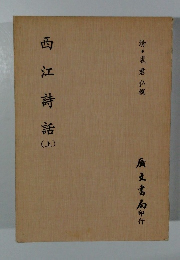 清•裘君弘撰
西江詩話
(上)
廣文書局印行